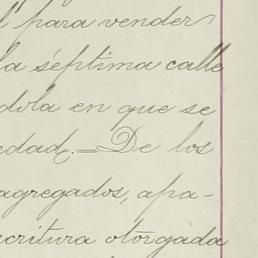 para vender
la séptima calle
dola en que se
edad.=De los
agregados, apa-
critura otorgada